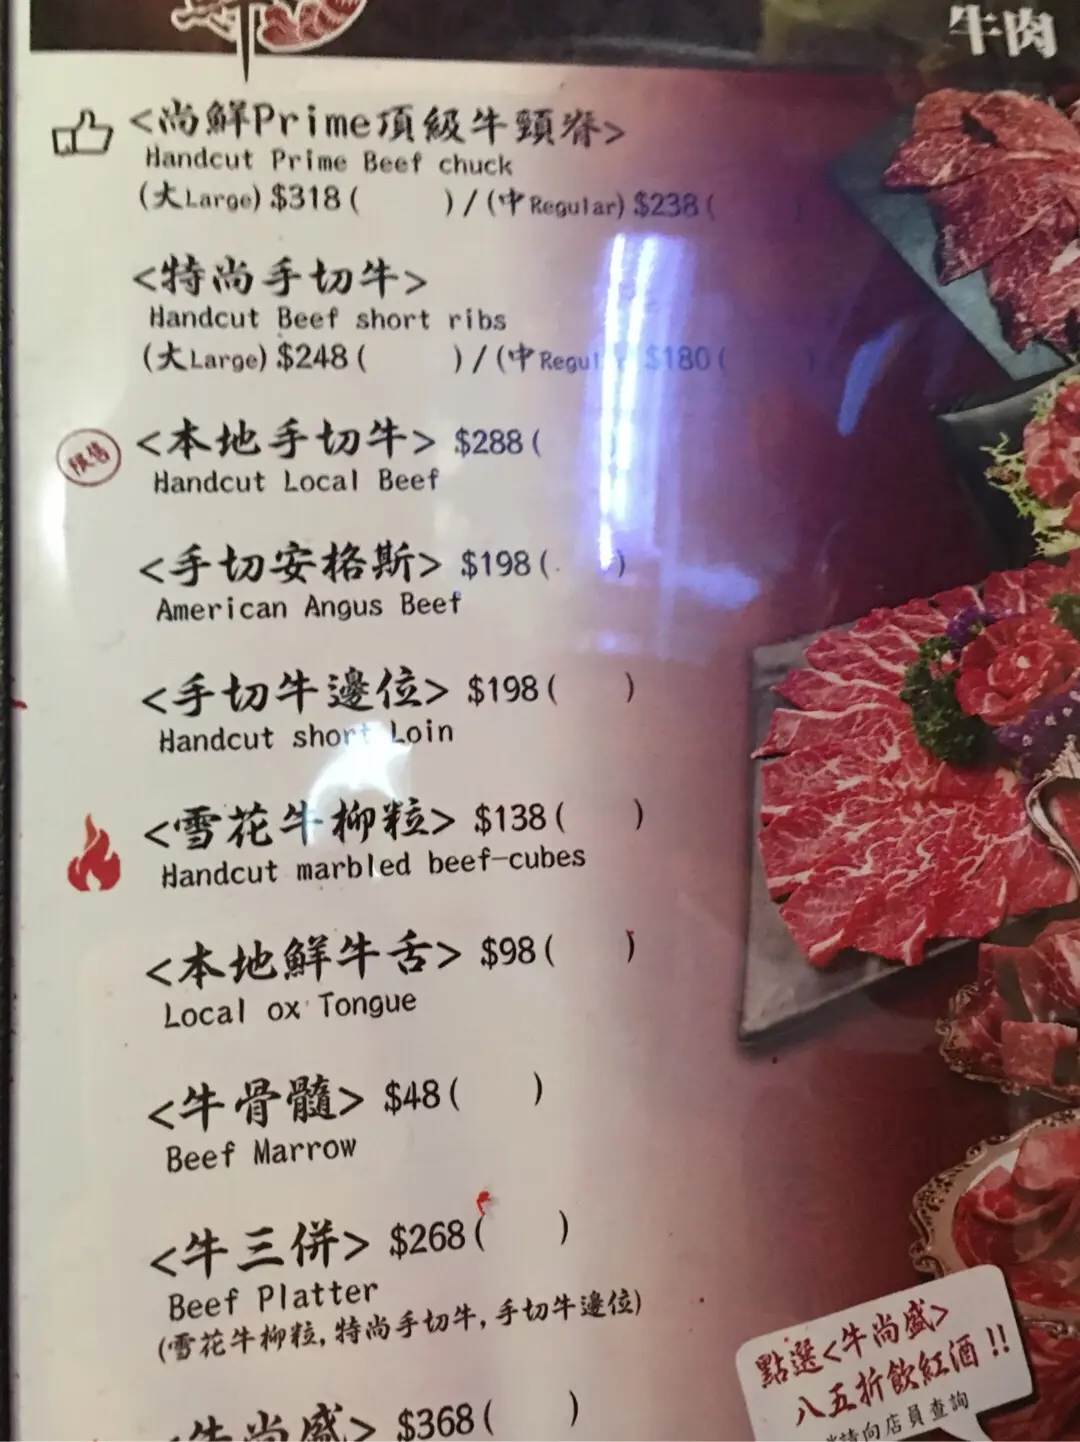 牛肉
<尚鮮Prime頂級牛頸脊>
Handcut Prime Beef chuck
(大Large) $318 (    ) / (中Regular) $238 (    )
<特尚手切牛>
Handcut Beef short ribs
(大Large) $248 (    ) / (中 $180 (    )
限售
<本地手切牛> $288 (
Handcut Local Beef
<手切安格斯> $198 (    )
American Angus Beef
<手切牛邊位> $198 (    )
Handcut short Loin
<雪花牛柳粒> $138 (    )
Handcut marbled beef-cubes
<本地鮮牛舌> $98 (    )
Local ox Tongue
<牛骨髓> $48 (    )
Beef Marrow
<牛三併> $268 (    )
Beef Platter
(雪花牛柳粒, 特尚手切牛, 手切牛邊位)
牛尚盛> $368 (    )
點選<牛尚盛>
八五折飲紅酒 !!
請向店員查詢